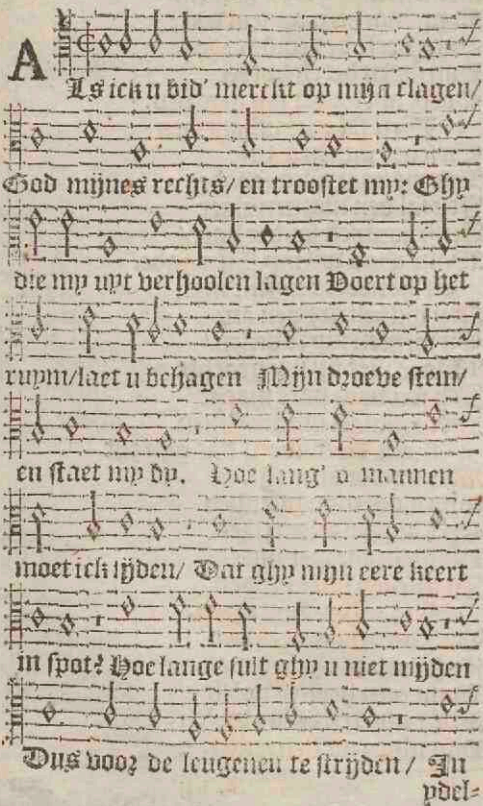 ALs ick u bid' merckt op mijn clagen/
God mijnes rechts/ en troostet my: Ghy
die my uyt verhoolen lagen Voert op het
ruym/laet u behagen Mijn droeve stem/
en staet my by. Hoe lang' o mannen
moet ick lijden/ Dat ghy mijn eere keert
in spot? Hoe lange sult ghy u niet mijden
Dus voor de leugenen te strijden/ In
ydel=